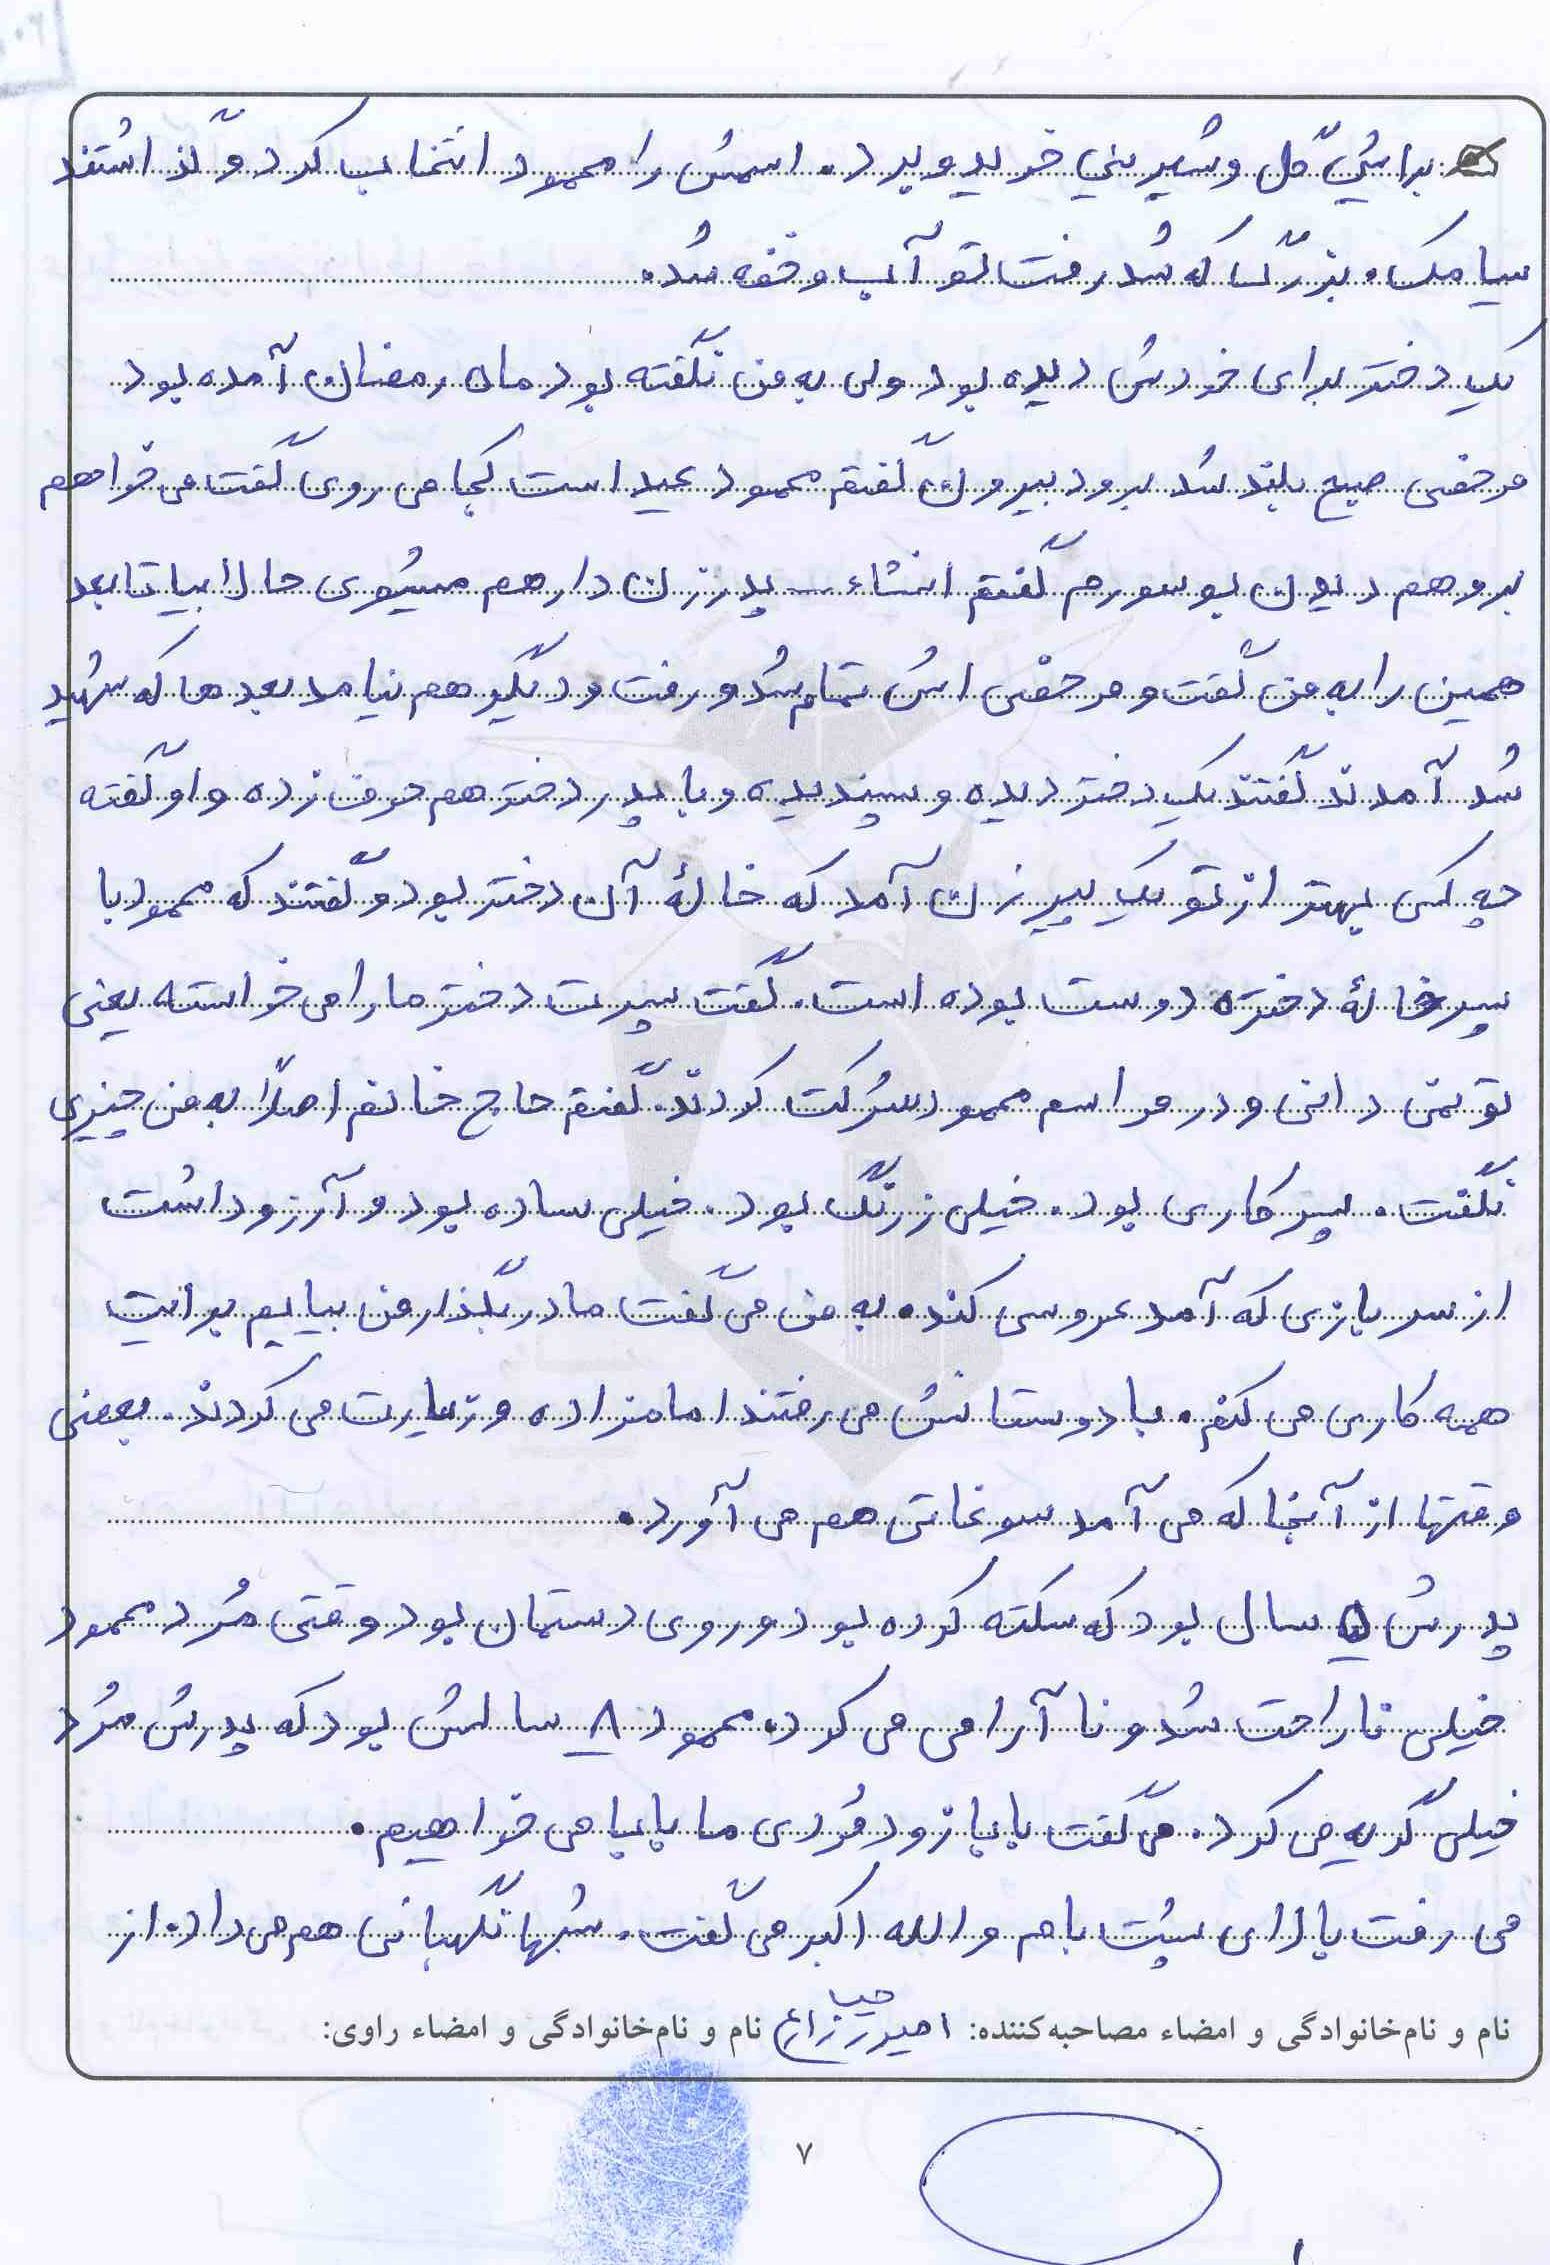 برایش گل و شیرینی خرید و برد. اسمش را محمود انتخاب کرد و گذاشتند
سیامک. بزرگ که شد رفت تو آب و خفه شد.
یک دختر برای خودش دیده بود ولی به من نگفته بود ماه رمضان آمده بود
مرخصی صبح بلند شد برود بیرون گفتم محمود عید است کجا می روی گفت می خواهم
بروهم دیدن یوسورم گفتم انشاء پدر زن دار هم میشوی حالا بیا تا بعد
همین را به من گفت و مرخصی اش تمام شد و رفت و دیگر هم نیامد بعدها که شهید
شد آمدند گفتند یک دختر دیده و پسندیده و با پدر دختر هم حرف زده و او گفته
چه کسی بهتر از تو یک پیرزن آمد که خالهٔ آن دختر بود و گفتند که محمود با
پسر خالهٔ دختره دوست بوده است. گفت پسرت دختر ما را می خواسته یعنی
تو نمی دانی و در مراسم محمود شرکت کردند. گفتم حاج خانم اصلاً به من چیزی
نگفت. پسر کاری بود. خیلی زرنگ بود. خیلی ساده بود و آرزو داشت
از سربازی که آمد عروسی کند. به من می گفت مادر بگذار من بیایم برایت
همه کاری می کنم. با دوستانش می رفتند امامزاده و زیارت می کردند. بعضی
وقتها از آنجا که می آمد سوغاتی هم می آورد.
پدرش ۵ سال بود که سکته کرده بود و روی دستمان بود وقتی مُرد محمود
خیلی ناراحت شد و نا آرامی می کرد. محمود ۸ سالش بود که پدرش مُرد
خیلی گریه می کرد. می گفت بابا زود مُردی ما بابا می خواهیم.
می رفت بالای پشت بام و الله اکبر می گفت. شبها نگهبانی هم می داد. از
نام و نام‌خانوادگی و امضاء مصاحبه‌کننده: نام و نام‌خانوادگی و امضاء راوی:
۷